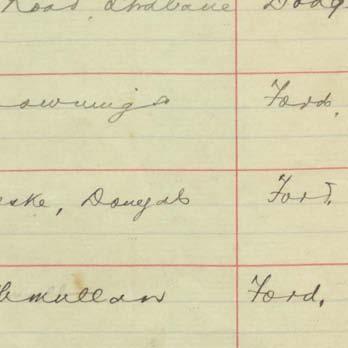 Road, Strabane Dodg
owning Ford.
eske, Donegal Ford.
cmullan Ford.